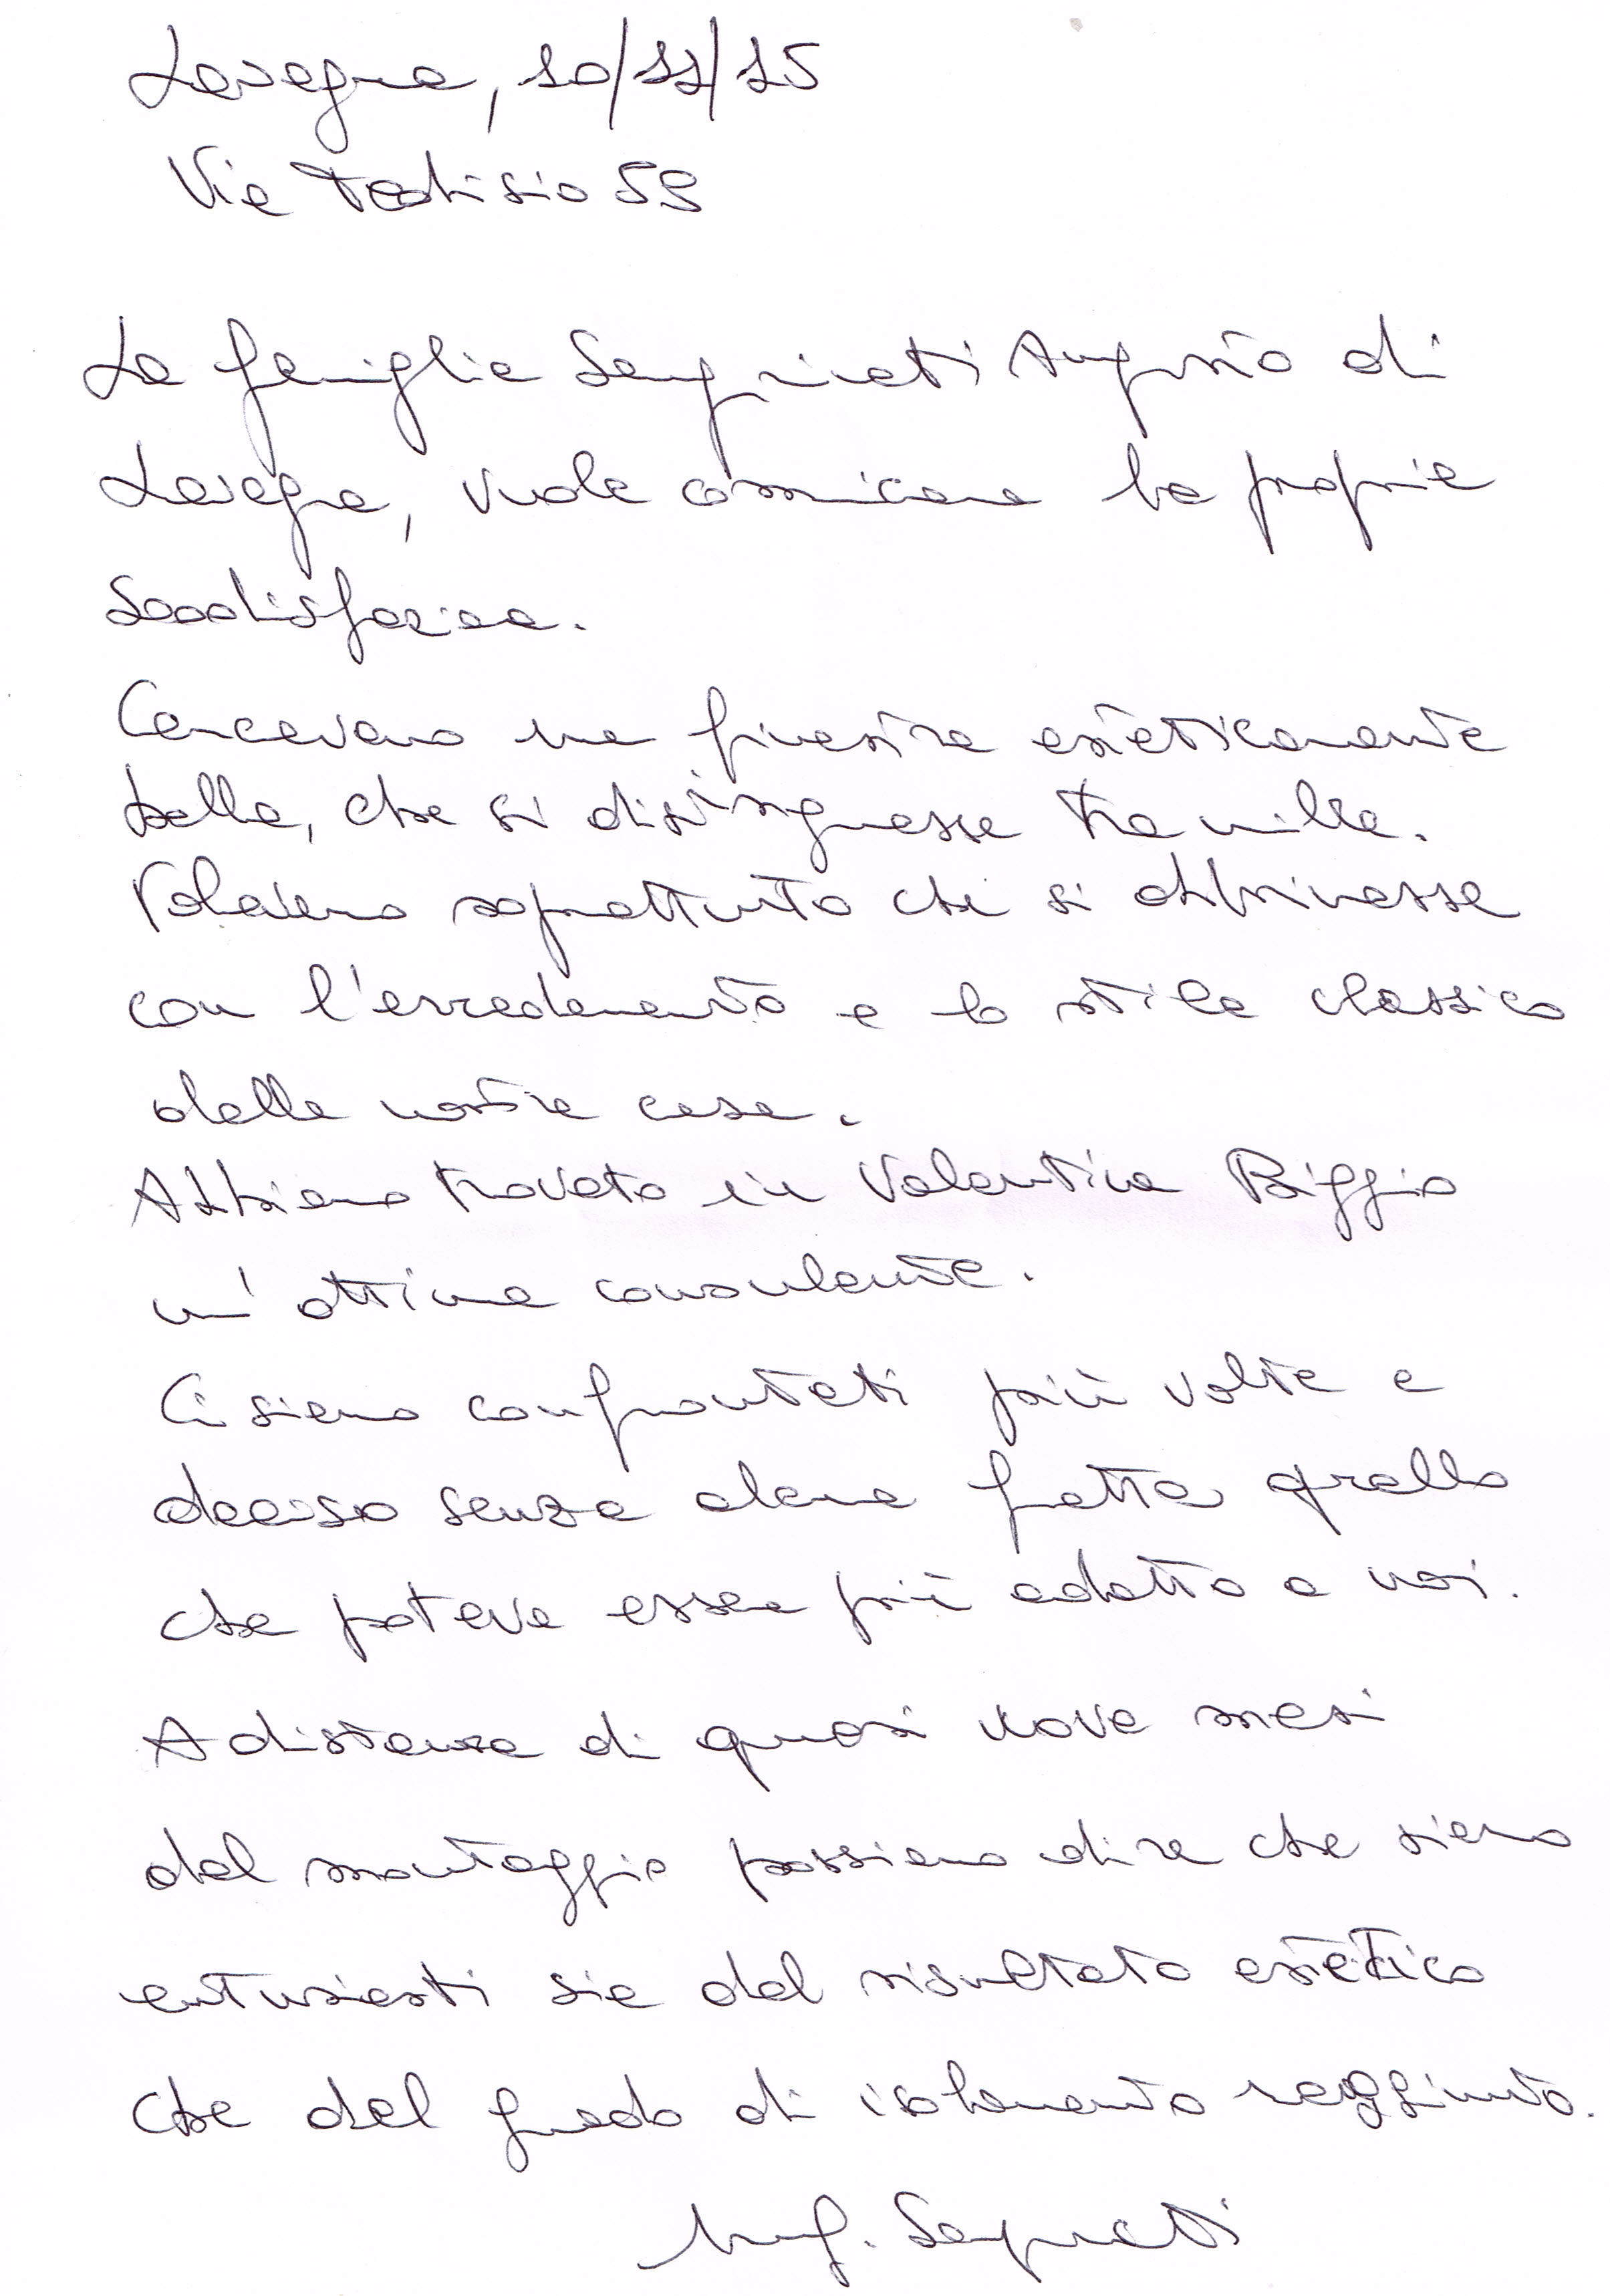 Lavagna, 10/11/15
Via Tedisio 59
La famiglia Augusto di
Lavagna, vuole comunicare la propria
soddisfazione.
Cercavamo una finestra esteticamente
bella, che si distinguesse tra mille.
Volevamo soprattutto che si abbinasse
con l'arredamento e lo stile classico
della nostra casa.
Abbiamo trovato in Valentina Biggio
un'ottima consulente.
Ci siamo confrontati più volte e
deciso senza alcuna fretta quello
che poteva essere più adatto a noi.
A distanza di quasi nove mesi
dal montaggio possiamo dire che siamo
entusiasti sia del risultato estetico
che del grado di isolamento raggiunto.